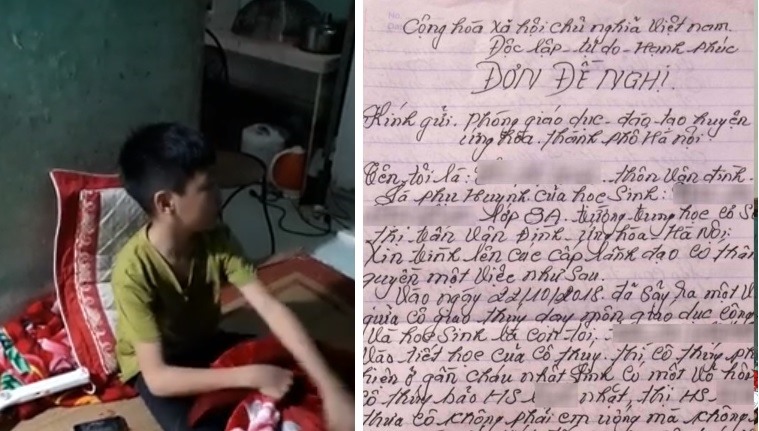 Cộng hòa xã hội chủ nghĩa Việt nam
Độc lập - tự do - Hạnh phúc
ĐƠN ĐỀ NGHỊ
Kính gửi. phòng giáo dục - đào tạo huyện
ứng hòa. thành phố Hà nội
Tên tôi là: thôn Vân đình -
Là phụ Huynh của học Sinh:
lớp 8A. trường trung học cơ Sở
thị trấn Vân Đình. ứng hòa - Hà Nội
Xin trình lên các cấp lãnh đạo có thẩm
quyền một việc như Sau.
Vào ngày 22/10/2018 đã Sẩy ra một
giữa cô giáo thúy dạy môn giáo dục công
Và học Sinh là con tôi.
Vào tiết học của cô thúy. thì cô thúy ph
hiện ở gần cháu nhất có một vỏ
cô thúy bảo HS nhất, thì HS
thưa cô không phải em uống mà không